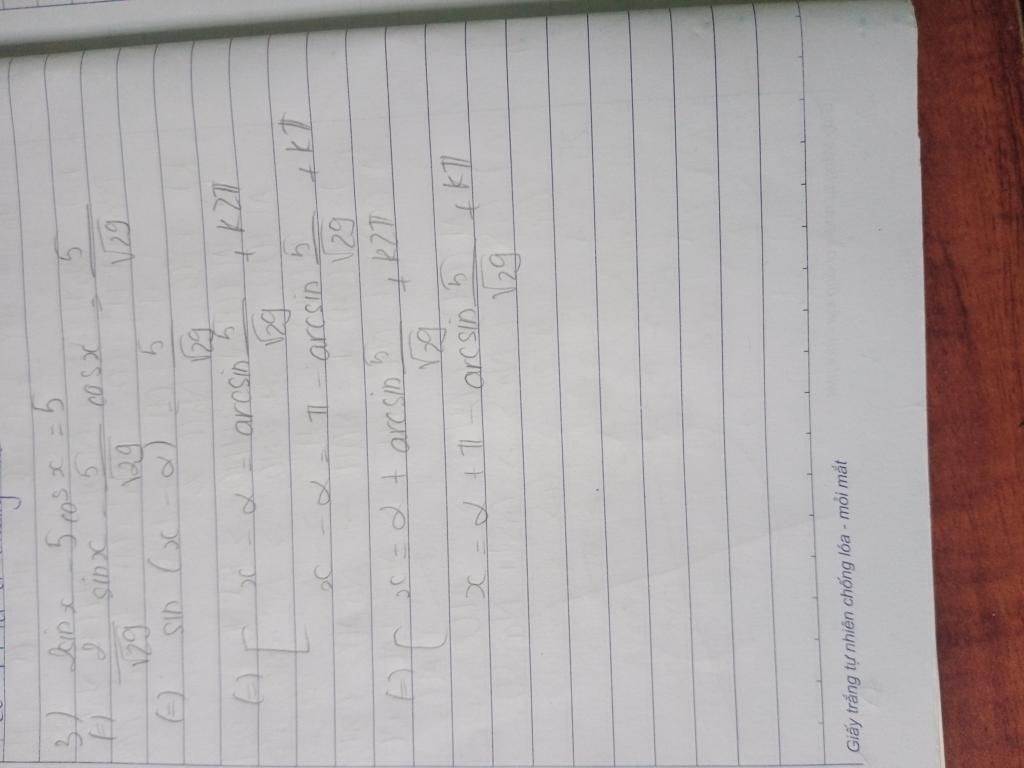 3) 2sinx - 5cosx = 5
(=) 2/√29 sinx - 5/√29 cosx = 5/√29
(=) sin (x - α) = 5/√29
(=) [ x - α = arcsin 5/√29 + k2π
x - α = π - arcsin 5/√29 + kπ
(=) [ x = α + arcsin 5/√29 + k2π
x = α + π - arcsin 5/√29 + kπ
Giấy trắng tự nhiên chống lóa - mỏi mắt